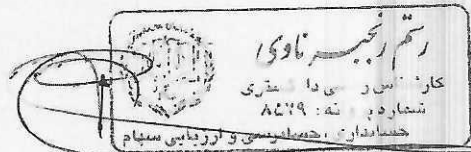 رستم رنجبر ناوی
کارشناس رسمی دادگستری
شماره پروانه: ۸۴۷۹
حسابداری، حسابرسی و ارزیابی سهام